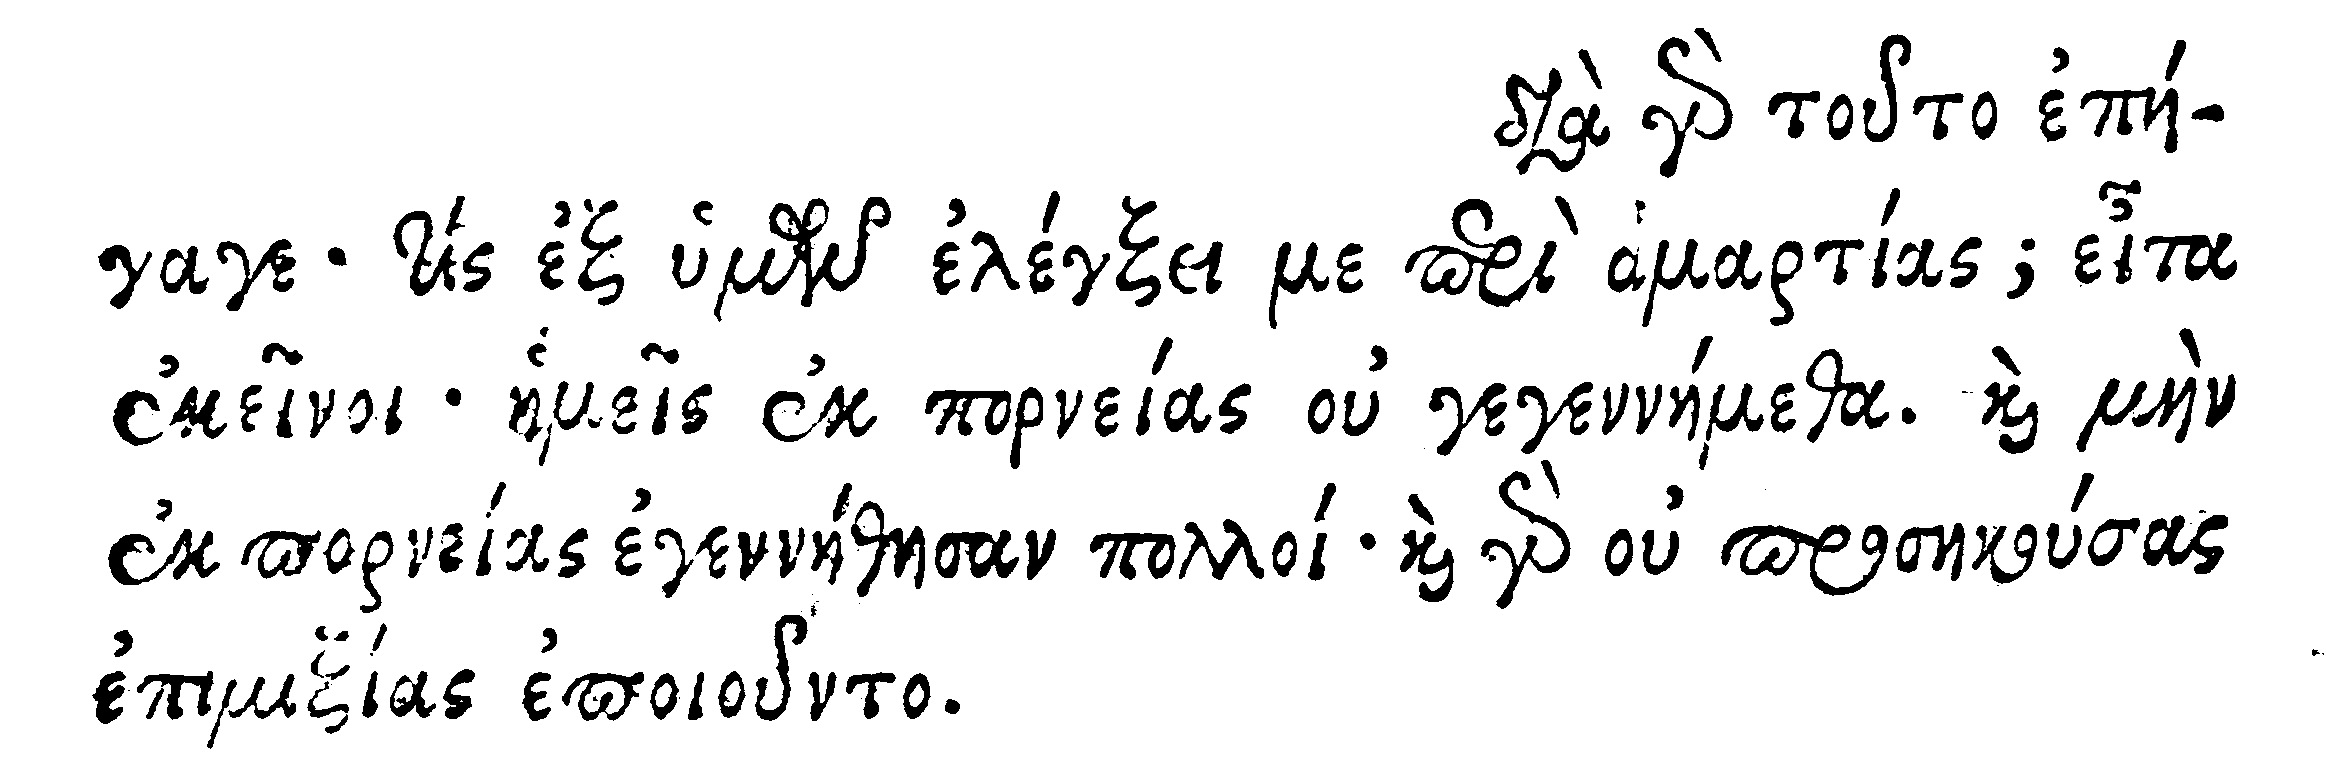 διὰ γὰρ τοῦτο ἐπή-
γαγε · τίς ἐξ ὑμῶν ἐλέγξει με περὶ ἁμαρτίας; εἶτα
ἐκεῖνοι · ἡμεῖς ἐκ πορνείας οὐ γεγεννήμεθα. καὶ μὴν
ἐκ πορνείας ἐγεννήθησαν πολλοί · καὶ γὰρ οὐ προσηκούσας
ἐπιμιξίας ἐποιοῦντο.